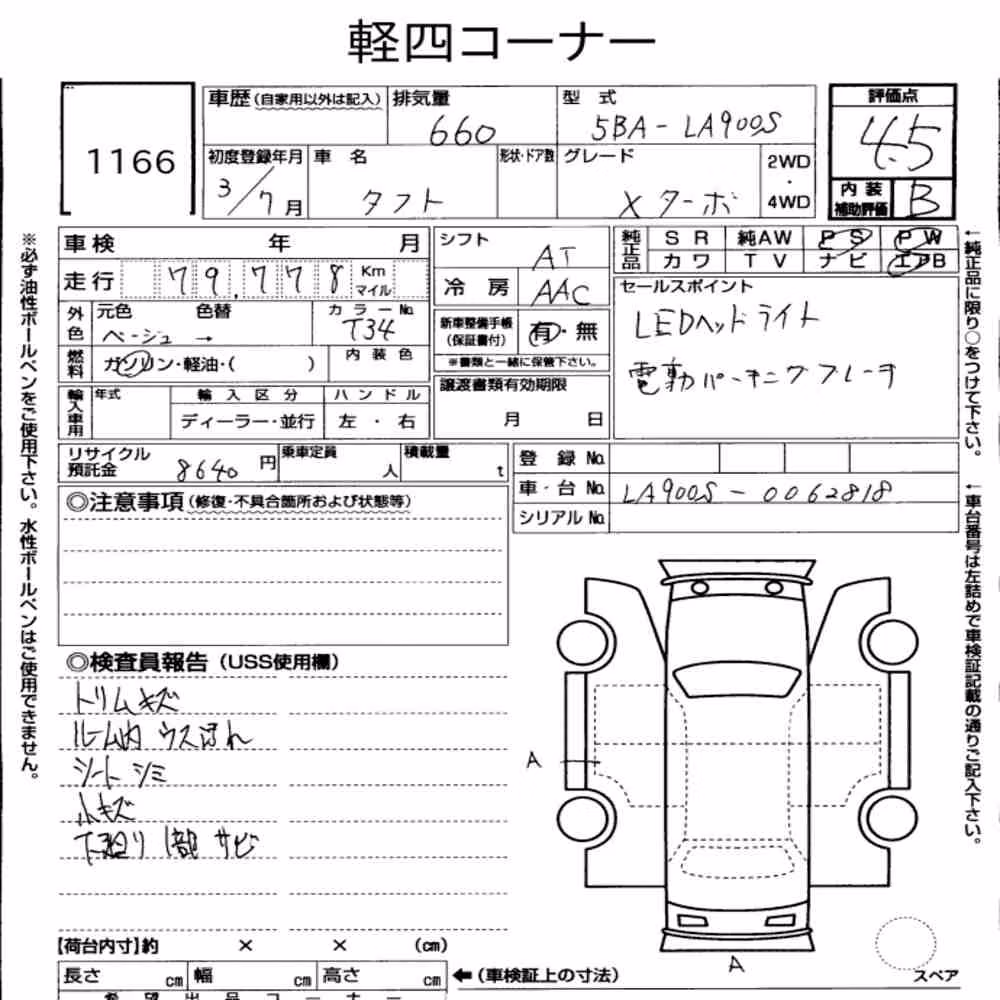 軽四コーナー
1166
車歴 (自家用以外は記入) 排気量 660 型式 5BA-LA900S 評価点 4.5
初度登録年月 3/7月 車名 タフト 形状・ドア数 グレード Xターボ 2WD・4WD 内装補助評価 B
車検 年 月 シフト AT 純正品 SR 純AW PS PW
走行 79,778 Km マイル 冷房 AAC カワ TV ナビ エアB
外色 元色 ベージュ → 色替 カラーNo. T34 新車整備手帳 (保証書付) 有・無 セールスポイント
※書類と一緒に保管下さい。 LEDヘッドライト
燃料 ガソリン・軽油・( ) 内装色 譲渡書類有効期限 月 日 電動パーキングブレーキ
輸入車用 年式 輸入区分 ハンドル
ディーラー・並行 左・右
リサイクル預託金 8640 円 乗車定員 人 積載量 t 登録No.
車・台No. LA900S-0062818
シリアルNo.
◎注意事項 (修復・不具合箇所および状態等)
◎検査員報告 (USS使用欄)
トリムキズ
ルーム内 ウスヨゴレ
シート シミ
小キズ
下廻り 1部 サビ
A
A
【荷台内寸】約 × × (cm)
長さ cm 幅 cm 高さ cm ←(車検証上の寸法) スペア
希望出品コーナー
※必ず油性ボールペンをご使用下さい。水性ボールペンはご使用できません。
←純正品に限り○をつけて下さい。
←車台番号は左詰めで車検証記載の通りご記入下さい。